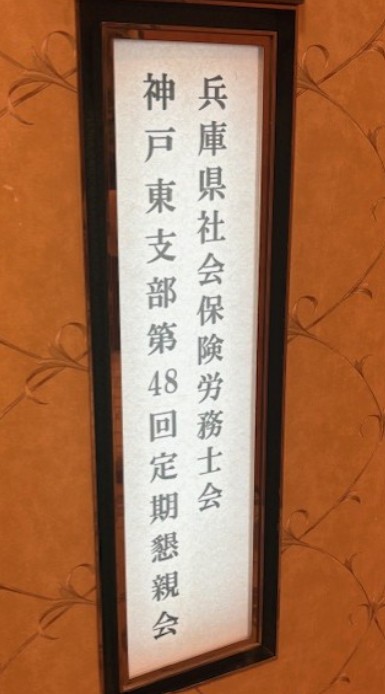 兵庫県社会保険労務士会
神戸東支部第48回定期懇親会